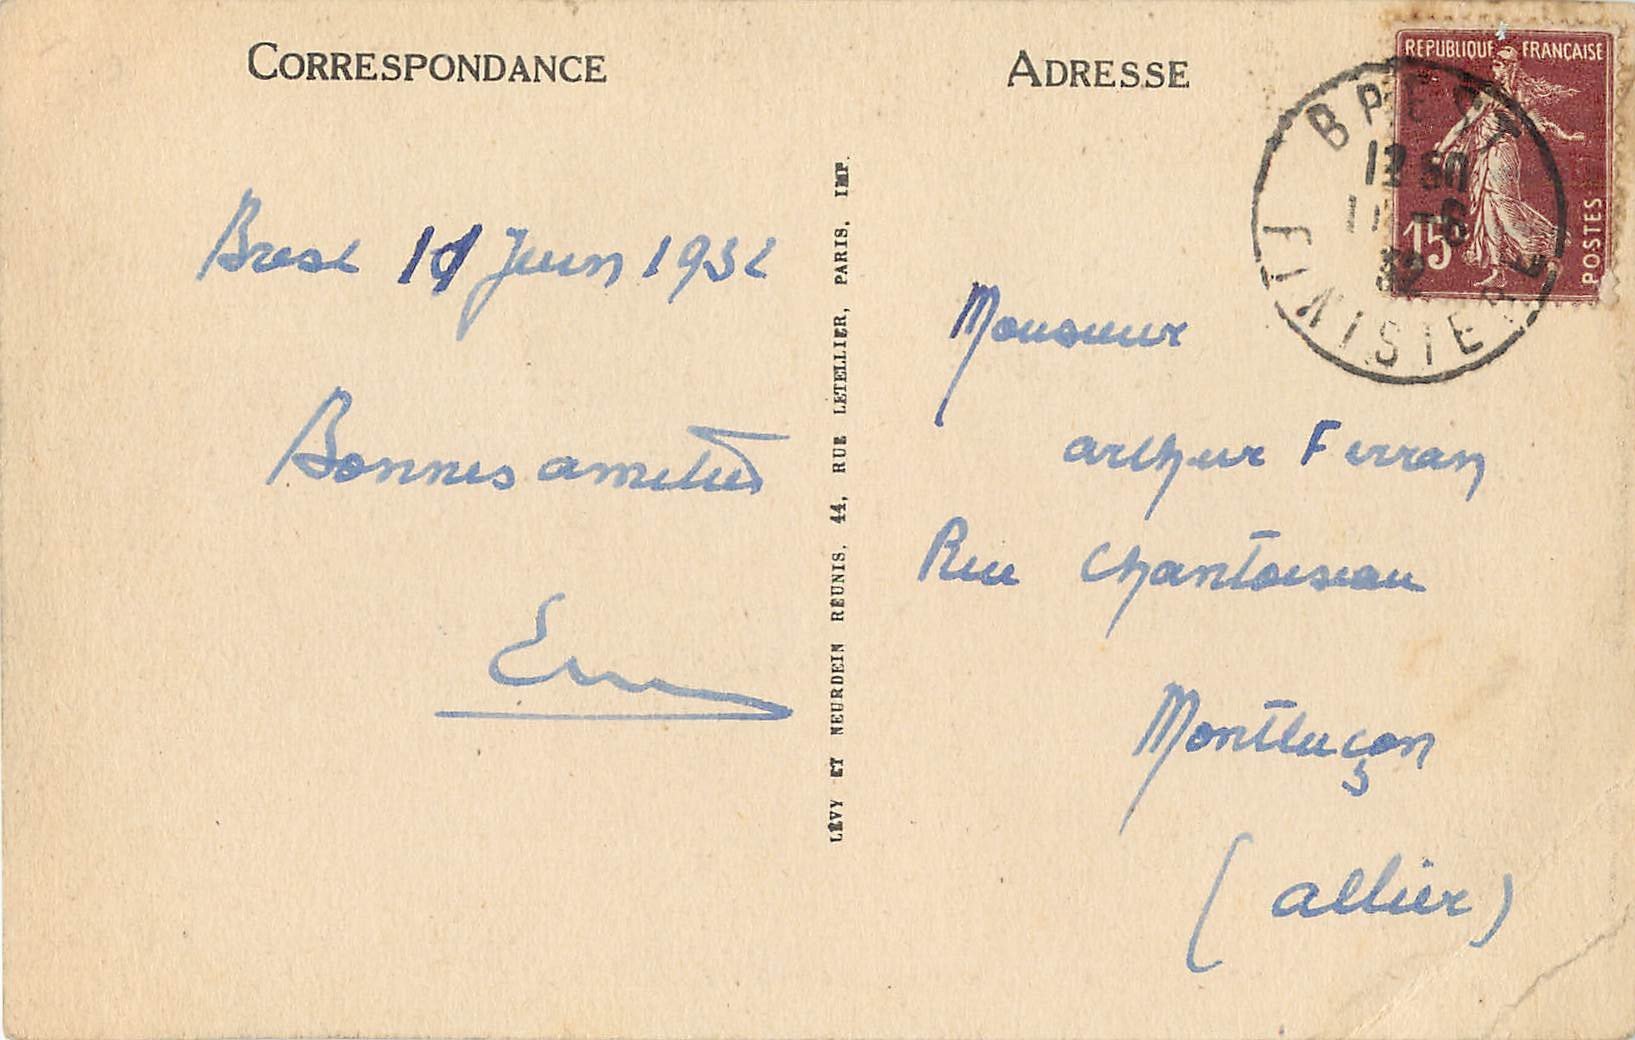 CORRESPONDANCE
Brest 11 Juin 1932
Bonnes amitiés
LÉVY ET NEURDEIN RÉUNIS, 44, RUE LETELLIER, PARIS, IMP.
ADRESSE
REPUBLIQUE FRANÇAISE
15
POSTES
BREST
11 -6
32
FINISTERE
Monsieur
arthur Ferran
Rue Chantoiseau
Montluçon
(allier)